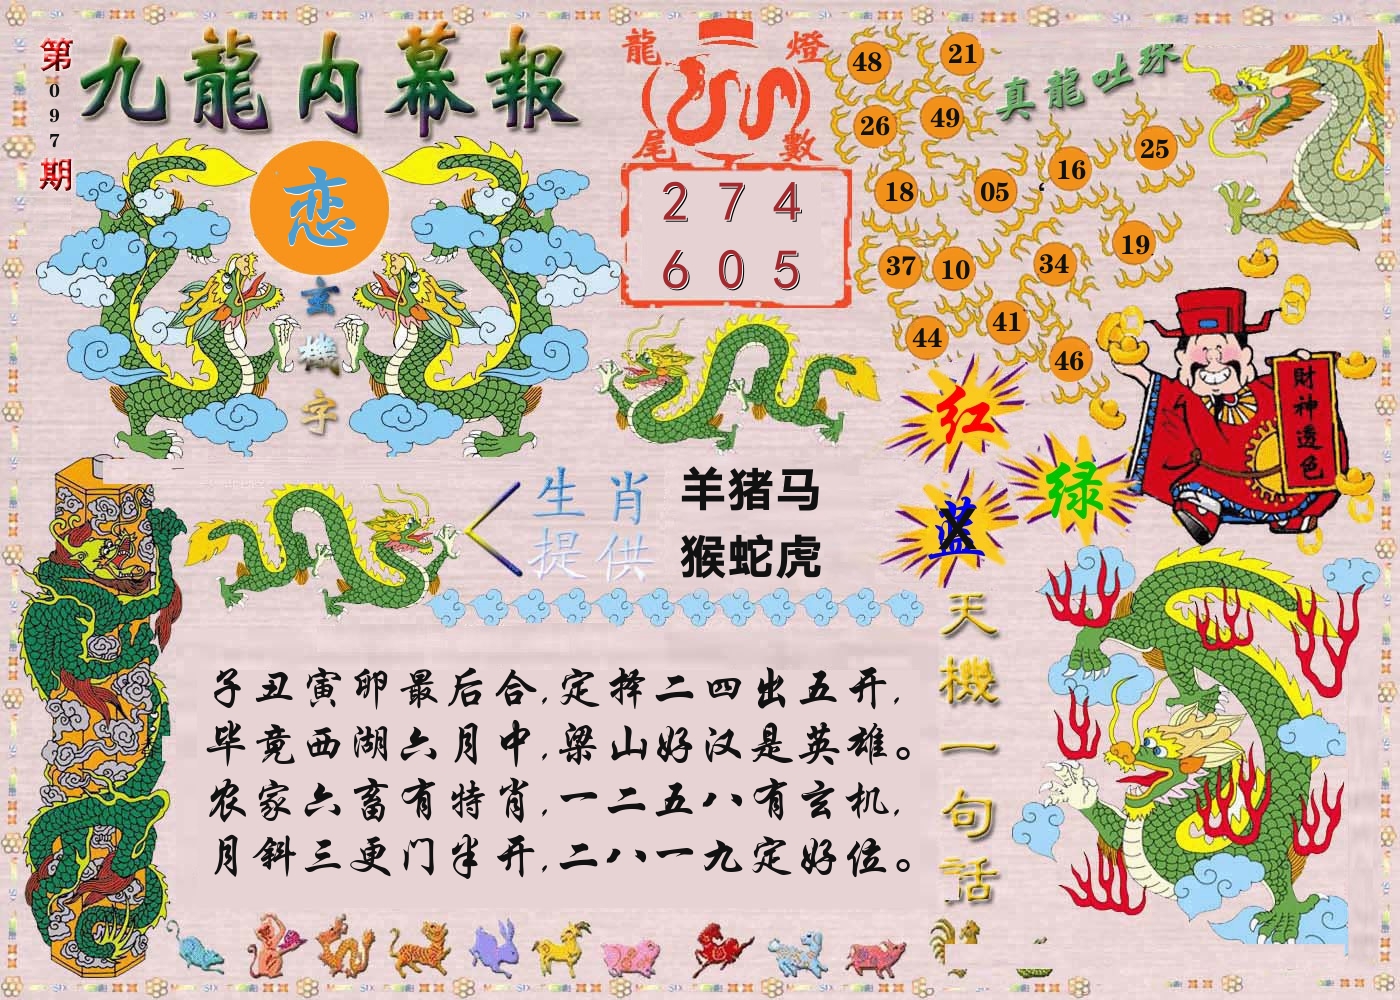 第097期
九龍内幕報
恋
玄機字
龍燈尾數
274
605
48 21
26 49
18 05 16 25
37 10 34 19
44 41 46
真龍吐珠
財神透色
红
绿
蓝
生肖提供
羊猪马
猴蛇虎
天機一句話
子丑寅卯最后合,定择二四出五开,
毕竟西湖六月中,梁山好汉是英雄。
农家六畜有特肖,一二五八有玄机,
月斜三更门半开,二八一九定好位。